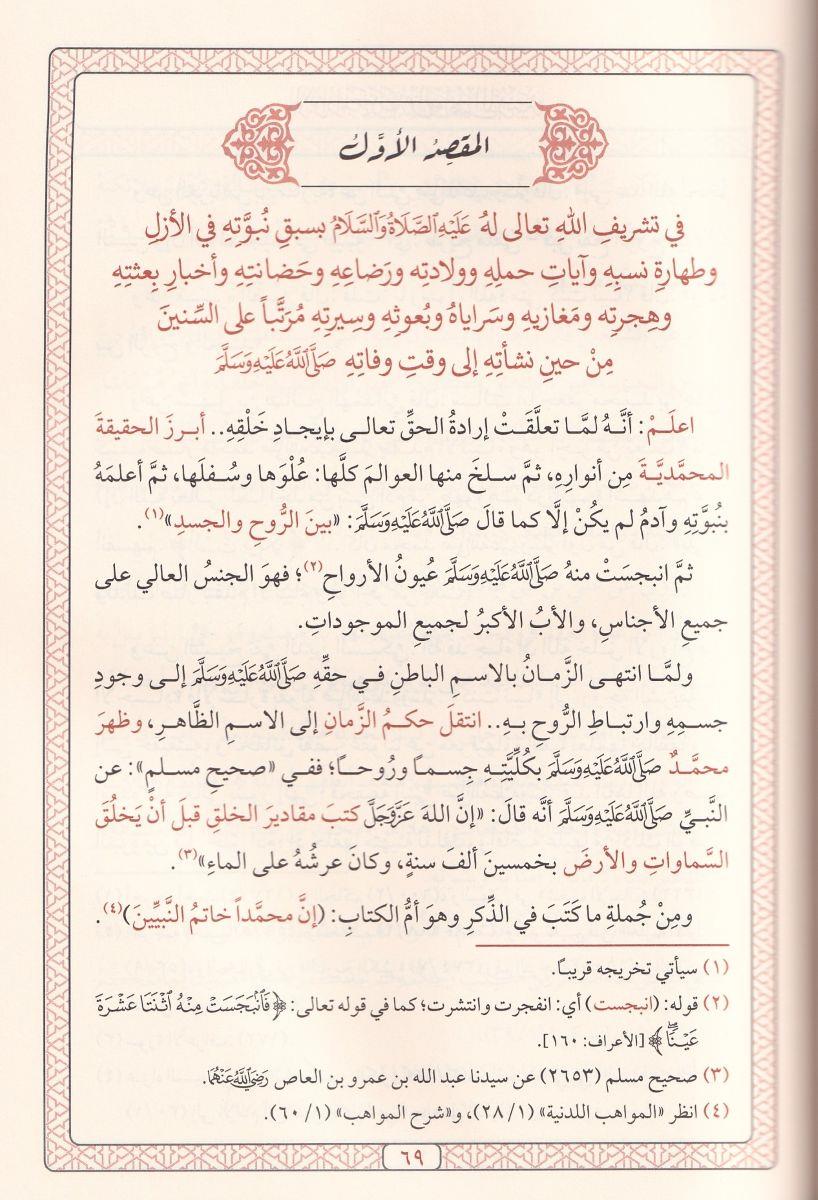 المقصِدُ الأوَّلُ
في تشريفِ اللهِ تعالى لهُ عَلَيْهِ الصَّلَاةُ وَالسَّلَامُ بسبقِ نُبوَّتِهِ في الأزلِ
وطهارةِ نسبِهِ وآياتِ حملِهِ وولادتِهِ ورَضاعِهِ وحَضانتِهِ وأخبارِ بِعثتِهِ
وهِجرتِه ومَغازيهِ وسَراياهُ وبُعوثِهِ وسِيرتِهِ مُرَتَّباً على السِّنينَ
مِنْ حينِ نشأتِهِ إلى وقتِ وفاتِهِ صَلَّى اللهُ عَلَيْهِ وَسَلَّمَ
اعلَمْ: أنَّهُ لمَّا تعلَّقَتْ إرادةُ الحقِّ تعالى بإيجادِ خَلْقِهِ.. أبرزَ الحقيقةَ
المحمَّديَّةَ مِن أنوارِهِ، ثمَّ سلخَ منها العوالمَ كلَّها: عُلْوَها وسُفلَها، ثمَّ أعلمَهُ
بنُبوَّتِهِ وآدمُ لم يكُنْ إلَّا كما قالَ صَلَّى اللهُ عَلَيْهِ وَسَلَّمَ: «بينَ الرُّوحِ والجسدِ»(١).
ثمَّ انبجسَتْ منهُ صَلَّى اللهُ عَلَيْهِ وَسَلَّمَ عُيونُ الأرواحِ(٢)؛ فهوَ الجنسُ العالي على
جميعِ الأجناسِ، والأبُ الأكبرُ لجميعِ الموجوداتِ.
ولمَّا انتهى الزَّمانُ بالاسمِ الباطنِ في حقِّهِ صَلَّى اللهُ عَلَيْهِ وَسَلَّمَ إلى وجودِ
جسمِهِ وارتباطِ الرُّوحِ بهِ.. انتقلَ حكمُ الزَّمانِ إلى الاسمِ الظَّاهرِ، وظهرَ
محمَّدٌ صَلَّى اللهُ عَلَيْهِ وَسَلَّمَ بكُلِّيَّتِهِ جِسماً ورُوحاً؛ ففي «صحيحِ مسلمٍ»: عن
النَّبيِّ صَلَّى اللهُ عَلَيْهِ وَسَلَّمَ أنَّه قالَ: «إنَّ اللهَ عَزَّ وَجَلَّ كتبَ مقاديرَ الخلقِ قبلَ أنْ يَخلُقَ
السَّماواتِ والأرضَ بخمسينَ ألفَ سنةٍ، وكانَ عرشُهُ على الماءِ»(٣).
ومِنْ جُملةِ ما كَتَبَ في الذِّكرِ وهوَ أمُّ الكتابِ: (إنَّ محمَّداً خاتمُ النَّبيِّينَ)(٤).
(١) سيأتي تخريجه قريباً.
(٢) قوله: (انبجست) أي: انفجرت وانتشرت؛ كما في قوله تعالى: ﴿فَٱنۢبَجَسَتۡ مِنۡهُ ٱثۡنَتَا عَشۡرَةَ
عَيۡنٗاۖ﴾ [الأعراف: ١٦٠].
(٣) صحيح مسلم (٢٦٥٣) عن سيدنا عبد الله بن عمرو بن العاص رَضِيَ اللهُ عَنْهُمَا.
(٤) انظر «المواهب اللدنية» (٢٨/١)، و«شرح المواهب» (٦٠/١).
٦٩